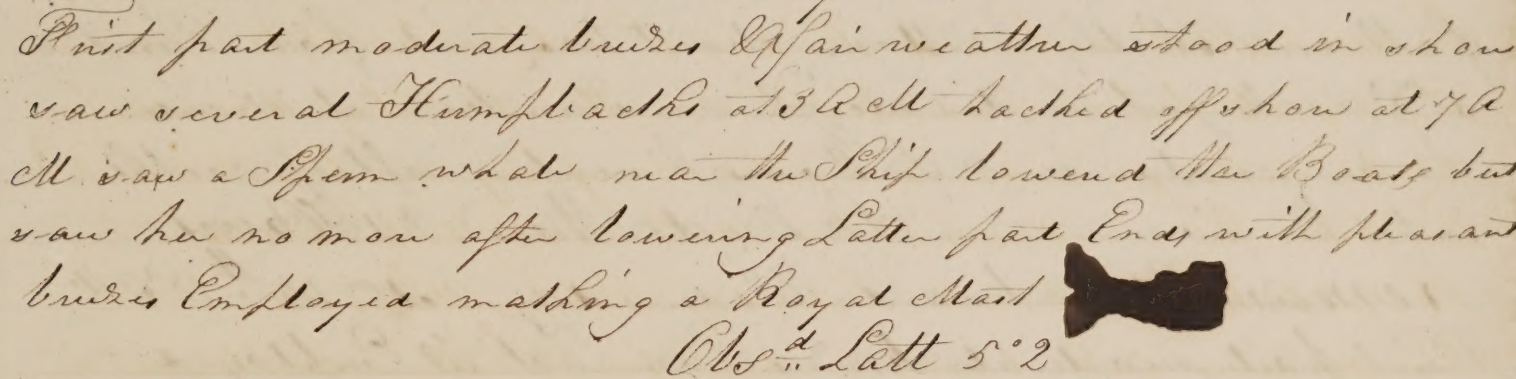 First part moderate breezes & fair weather stood in shore
saw several Humpbacks at 3 A M tacked off shore at 7 A
M saw a Sperm whale near the Ship lowered the Boats but
saw her no more after lowering Latter part Ends with pleasant
breezes Employed making a Royal Mast
Obs.d Latt 5°2